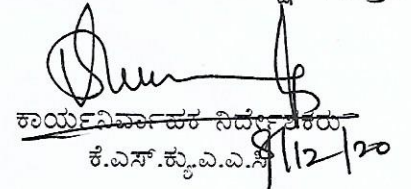 ಕಾರ್ಯನಿರ್ವಾಹಕ ನಿರ್ದೇಶಕರು
ಕೆ.ಎಸ್.ಕ್ಯು.ಎ.ಎ.ಸಿ
8/12/20